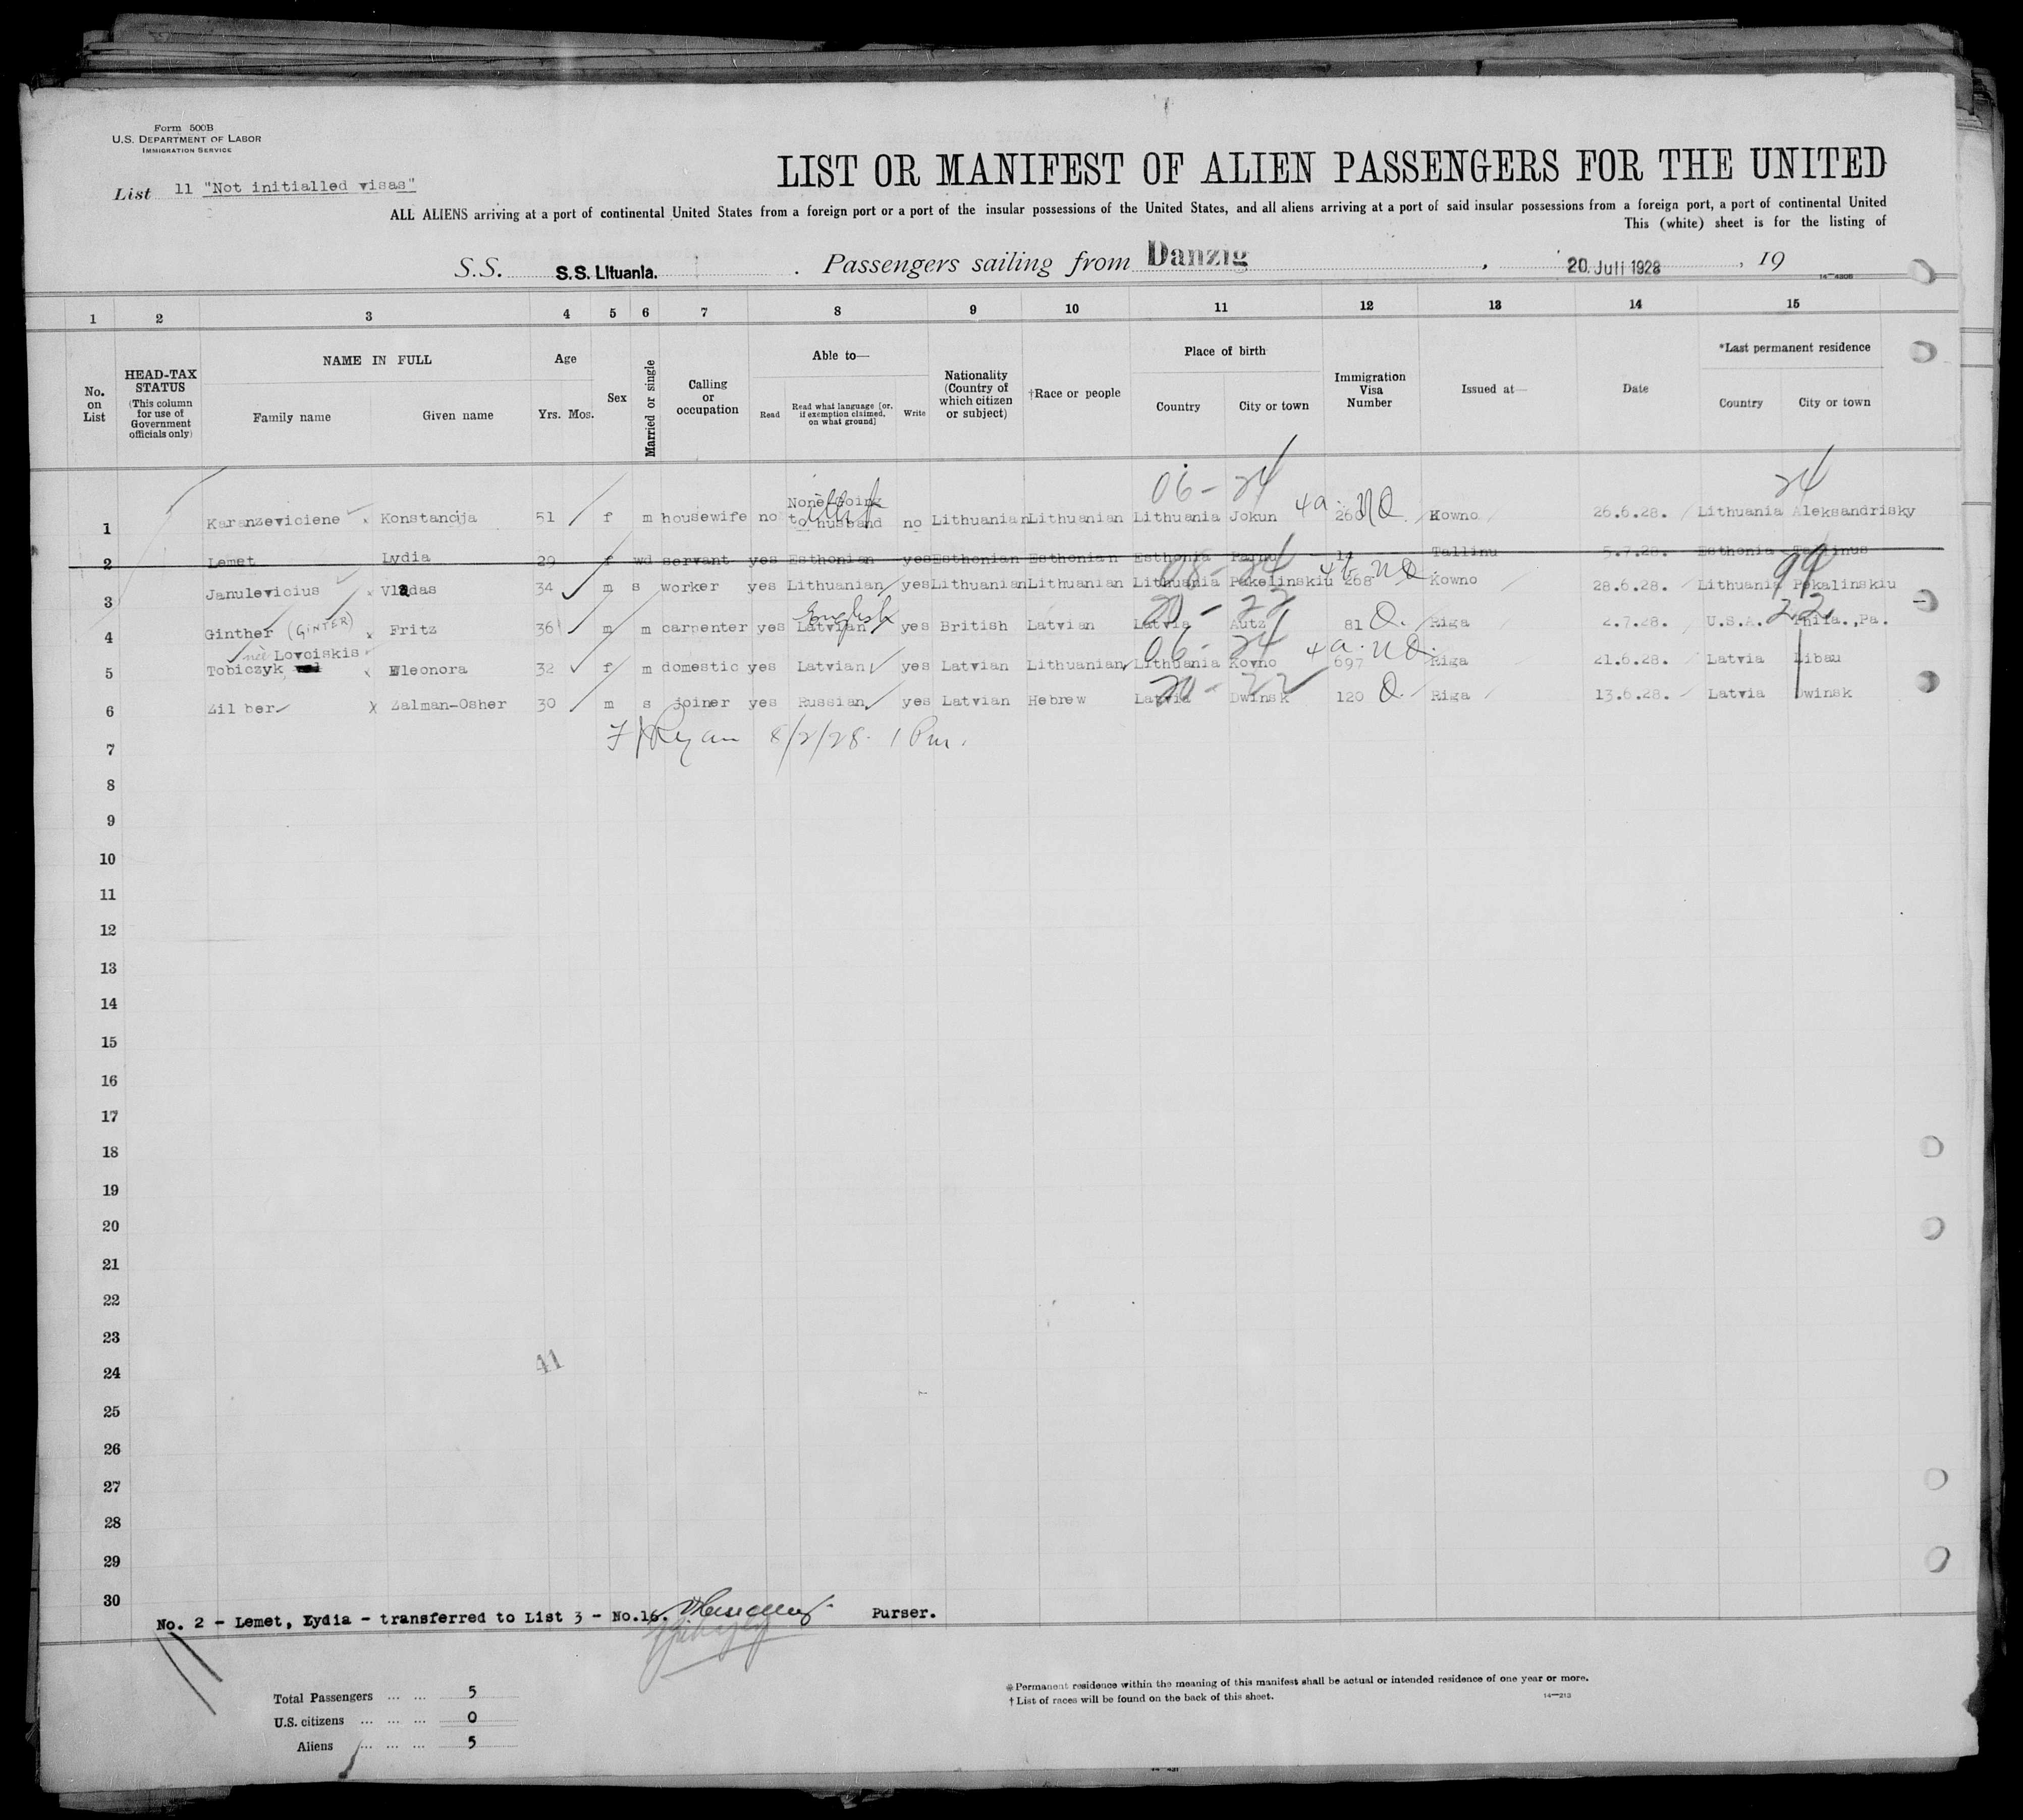 Form 500B
U.S. DEPARTMENT OF LABOR
IMMIGRATION SERVICE
List 11 "Not initialled visas"
LIST OR MANIFEST OF ALIEN PASSENGERS FOR THE UNITED
ALL ALIENS arriving at a port of continental United States from a foreign port or a port of the insular possessions of the United States, and all aliens arriving at a port of said insular possessions from a foreign port, a port of continental United
This (white) sheet is for the listing of
S.S. S.S. Lituania. Passengers sailing from Danzig, 20. Juli 1928, 19
14—4906
1 2 3 4 5 6 7 8 9 10 11 12 13 14 15
No. on List
HEAD-TAX STATUS (This column for use of Government officials only)
NAME IN FULL Family name Given name
Age Yrs. Mos.
Sex
Married or single
Calling or occupation
Able to— Read Read what language [or, if exemption claimed, on what ground] Write
Nationality (Country of which citizen or subject)
†Race or people
Place of birth Country City or town
Immigration Visa Number
Issued at—
Date
*Last permanent residence Country City or town
06 - 24 24
1 Karanzeviciene Konstancija 51 f m housewife no None going to husband no Lithuanian Lithuanian Lithuania Jokun 4a. 260 ND. Kowno 26.6.28. Lithuania Aleksandrisky
2 Lemet Lydia 29 f wd servant yes Esthonian yes Esthonian Esthonian Esthonia 14 Tallinu 5.7.28. Esthonia Tallinus
3 Janulevicius Vladas 34 m s worker yes Lithuanian yes Lithuanian Lithuanian Lithuania Pekelinskiu 268 ND. Kowno 28.6.28. Lithuania Pekalinskiu
English 20 - 22 22
4 Ginther (GINTER) Fritz 36 m m carpenter yes Latvian yes British Latvian Latvia Autz 81 Q. Riga 2.7.28. U.S.A. Phila.,Pa.
neè Lovciskis 06 - 24 4a. ND.
5 Tobiczyk Eleonora 32 f m domestic yes Latvian yes Latvian Lithuanian Lithuania Kovno 697 Riga 21.6.28. Latvia Libau
20 - 22
6 Zilber Zalman-Osher 30 m s joiner yes Russian yes Latvian Hebrew Latvia Dwinsk 120 Q. Riga 13.6.28. Latvia Dwinsk
7 Ryan 8/2/28. 1 Pm.
8
9
10
11
12
13
14
15
16
17
18
19
20
21
22
23
24 41
25
26
27
28
29
30
No. 2 - Lemet, Lydia - transferred to List 3 - No.16. Purser.
Total Passengers ... ... 5
U.S. citizens ... ... ... 0
Aliens ... ... ... 5
* Permanent residence within the meaning of this manifest shall be actual or intended residence of one year or more.
† List of races will be found on the back of this sheet.
14—213